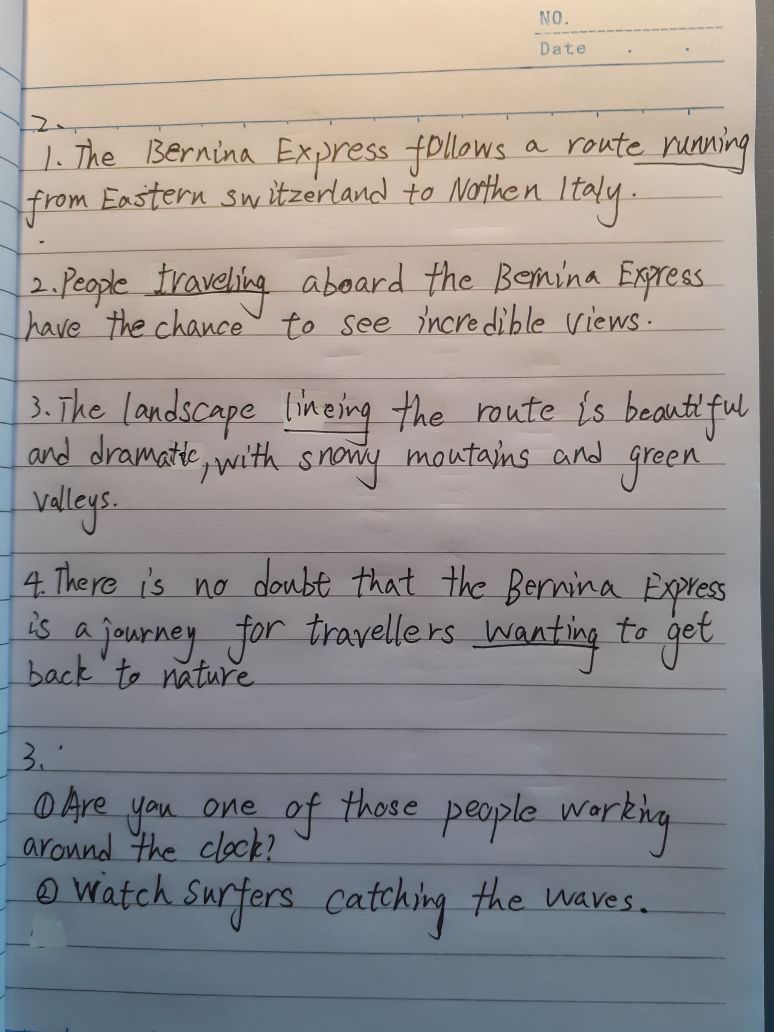 NO.
Date . .
2.
1. The Bernina Express follows a route running
from Eastern switzerland to Nothen Italy.
2. People traveling aboard the Bernina Express
have the chance to see incredible views.
3. The landscape lineing the route is beautiful
and dramatic, with snowy moutains and green
valleys.
4. There is no doubt that the Bernina Express
is a journey for travellers wanting to get
back to nature
3.
① Are you one of those people working
around the clock?
② Watch surfers catching the waves.